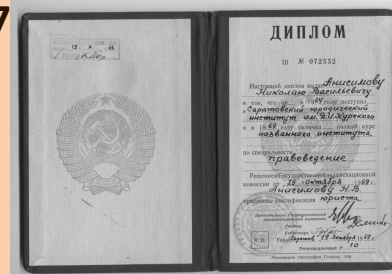 7
19 X 69
ДИПЛОМ
Ш № 072332
Настоящий диплом выдан Анисимову
Николаю Васильевичу
в том, что он в 1964 году поступил
в Саратовский юридический
институт им. Д.И.Курского
и в 1969 году окончил полный курс
названного института
по специальности
правоведение
Решением Государственной экзаменационной
комиссии от 19 октября 1969 г.
Анисимову Н.В.
присвоена квалификация юриста
Председатель Государственной
экзаменационной комиссии
Ректор
Секретарь
М. П.
Город Саратов 19 октября 1969 г.
Регистрационный № 10